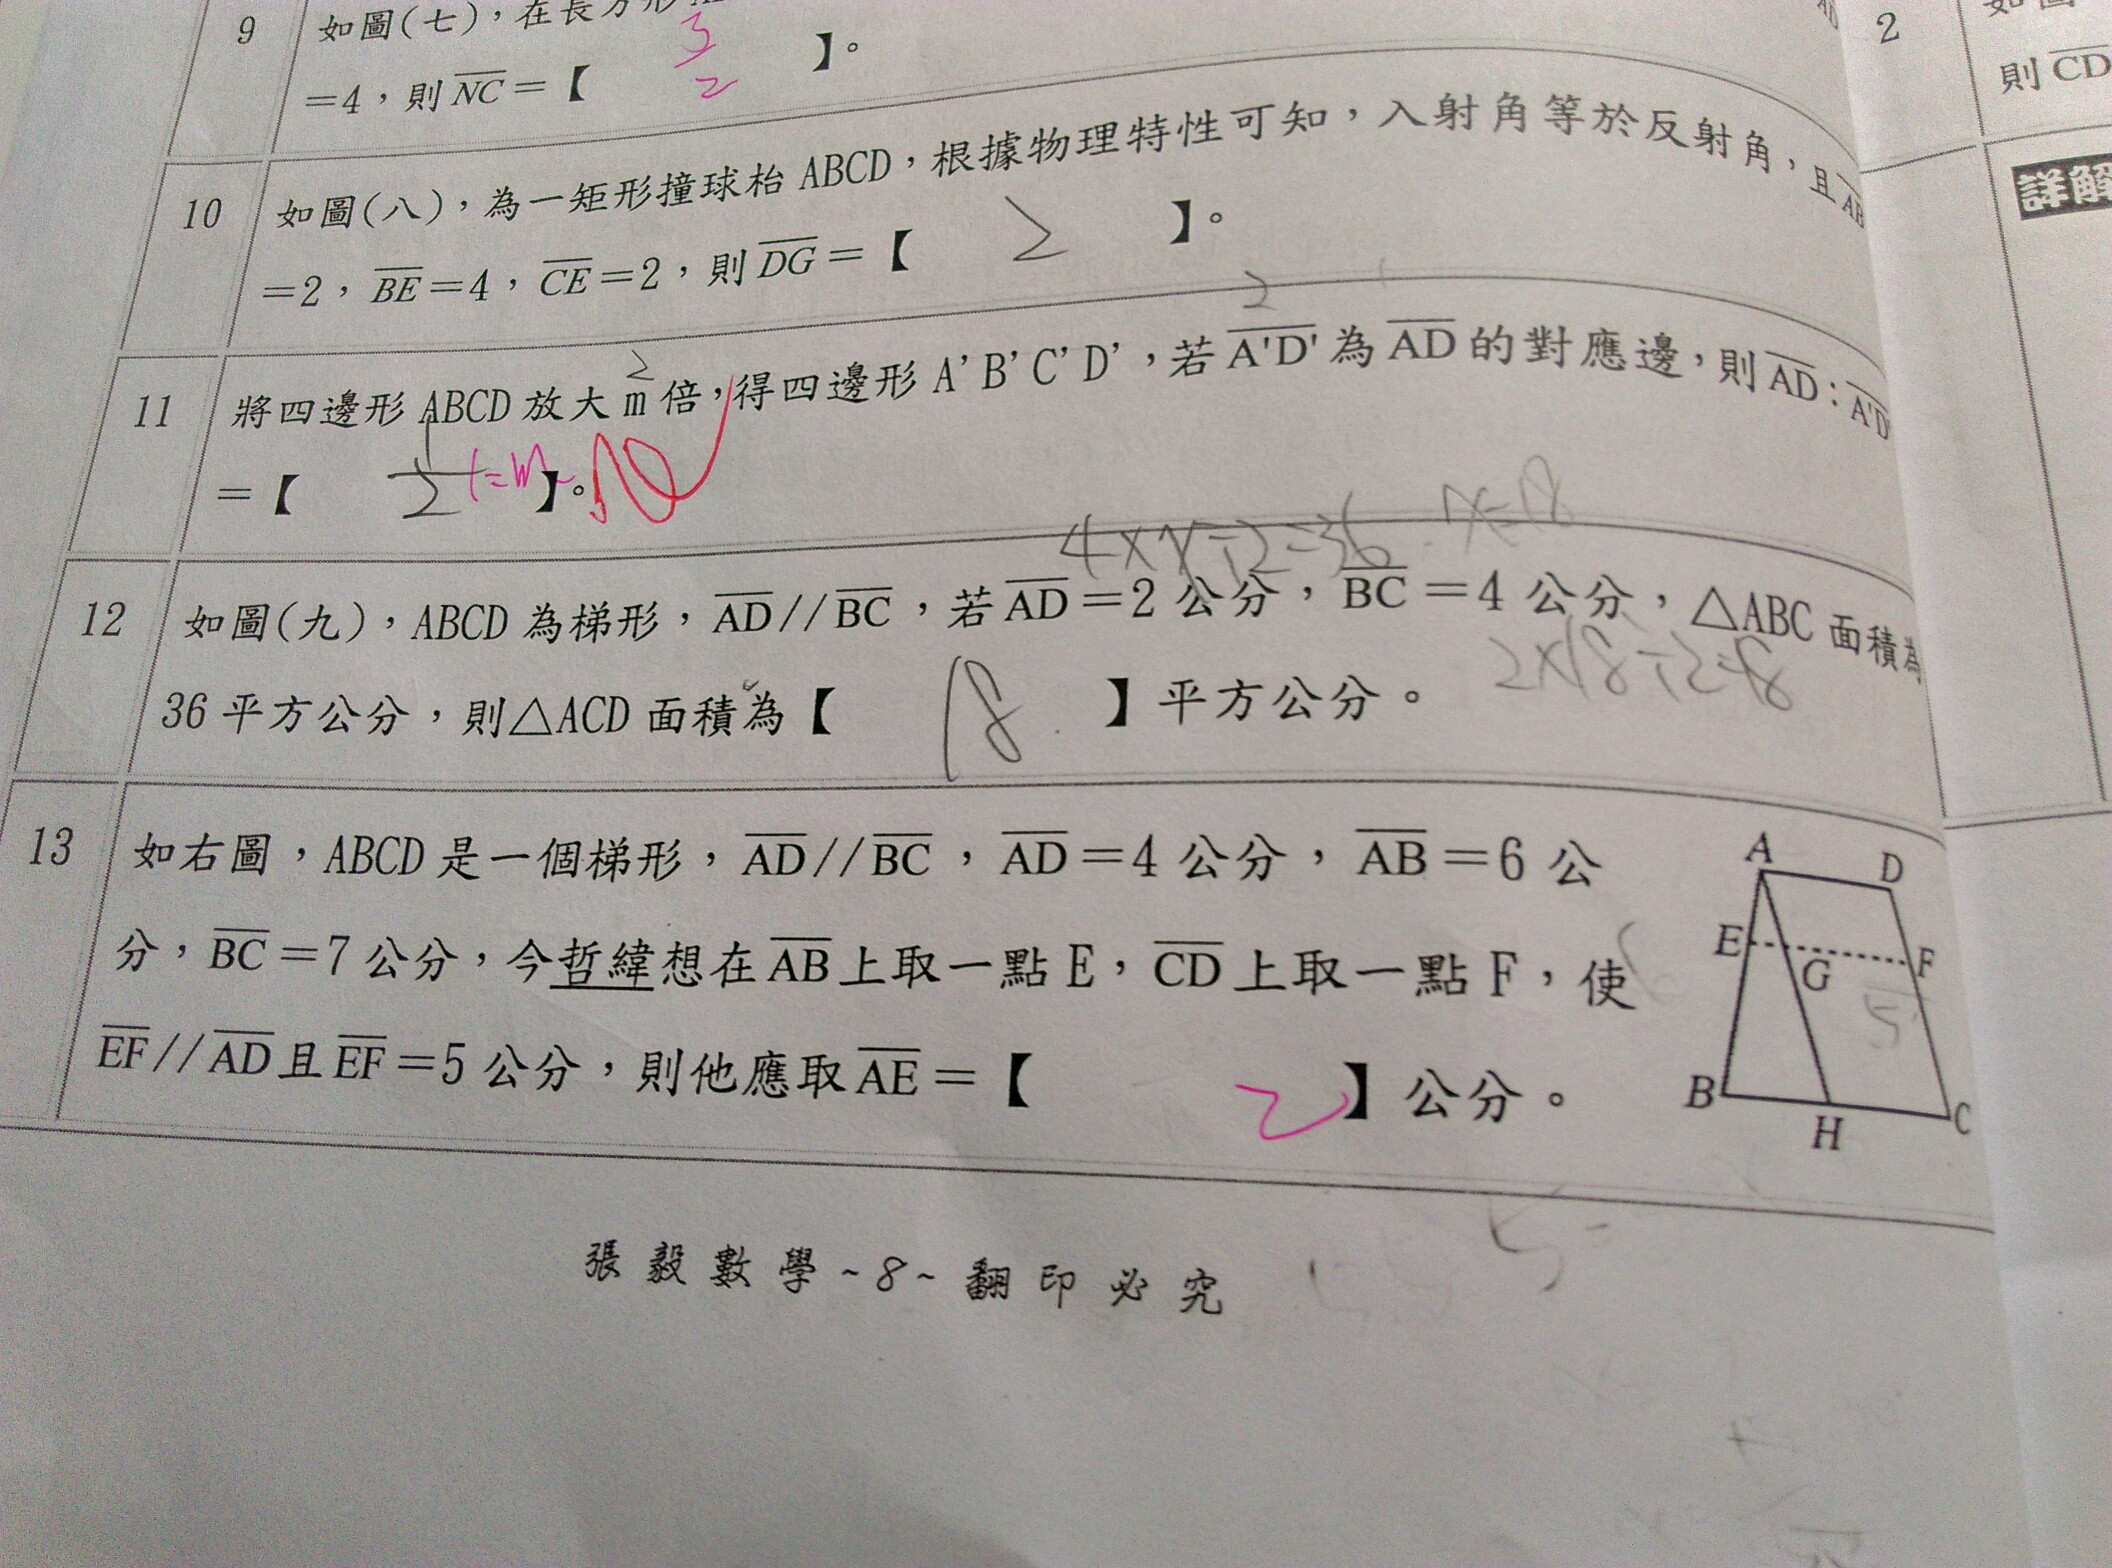 9 如圖(七)，在長方形
=4，則NC=【 3/2 】。
10 如圖(八)，為一矩形撞球枱 ABCD，根據物理特性可知，入射角等於反射角，且AB
=2，BE=4，CE=2，則DG=【 2 】。
2
2
11 將四邊形 ABCD 放大 m 倍，得四邊形 A'B'C'D'，若A'D'為AD的對應邊，則AD：A'D'
=【 1/2 1=m 】。
4×x÷2=36 x=18
12 如圖(九)，ABCD 為梯形，AD//BC，若AD=2 公分，BC=4 公分，△ABC 面積為
2×18÷2=18
36 平方公分，則△ACD 面積為【 18 】平方公分。
13 如右圖，ABCD 是一個梯形，AD//BC，AD=4 公分，AB=6 公
分，BC=7 公分，今哲緯想在AB上取一點 E，CD上取一點 F，使
EF//AD且EF=5 公分，則他應取AE=【 2 】公分。
A
D
E
G
F
5
B
H
C
張毅數學~8~翻印必究
2 如圖
則CD
詳解